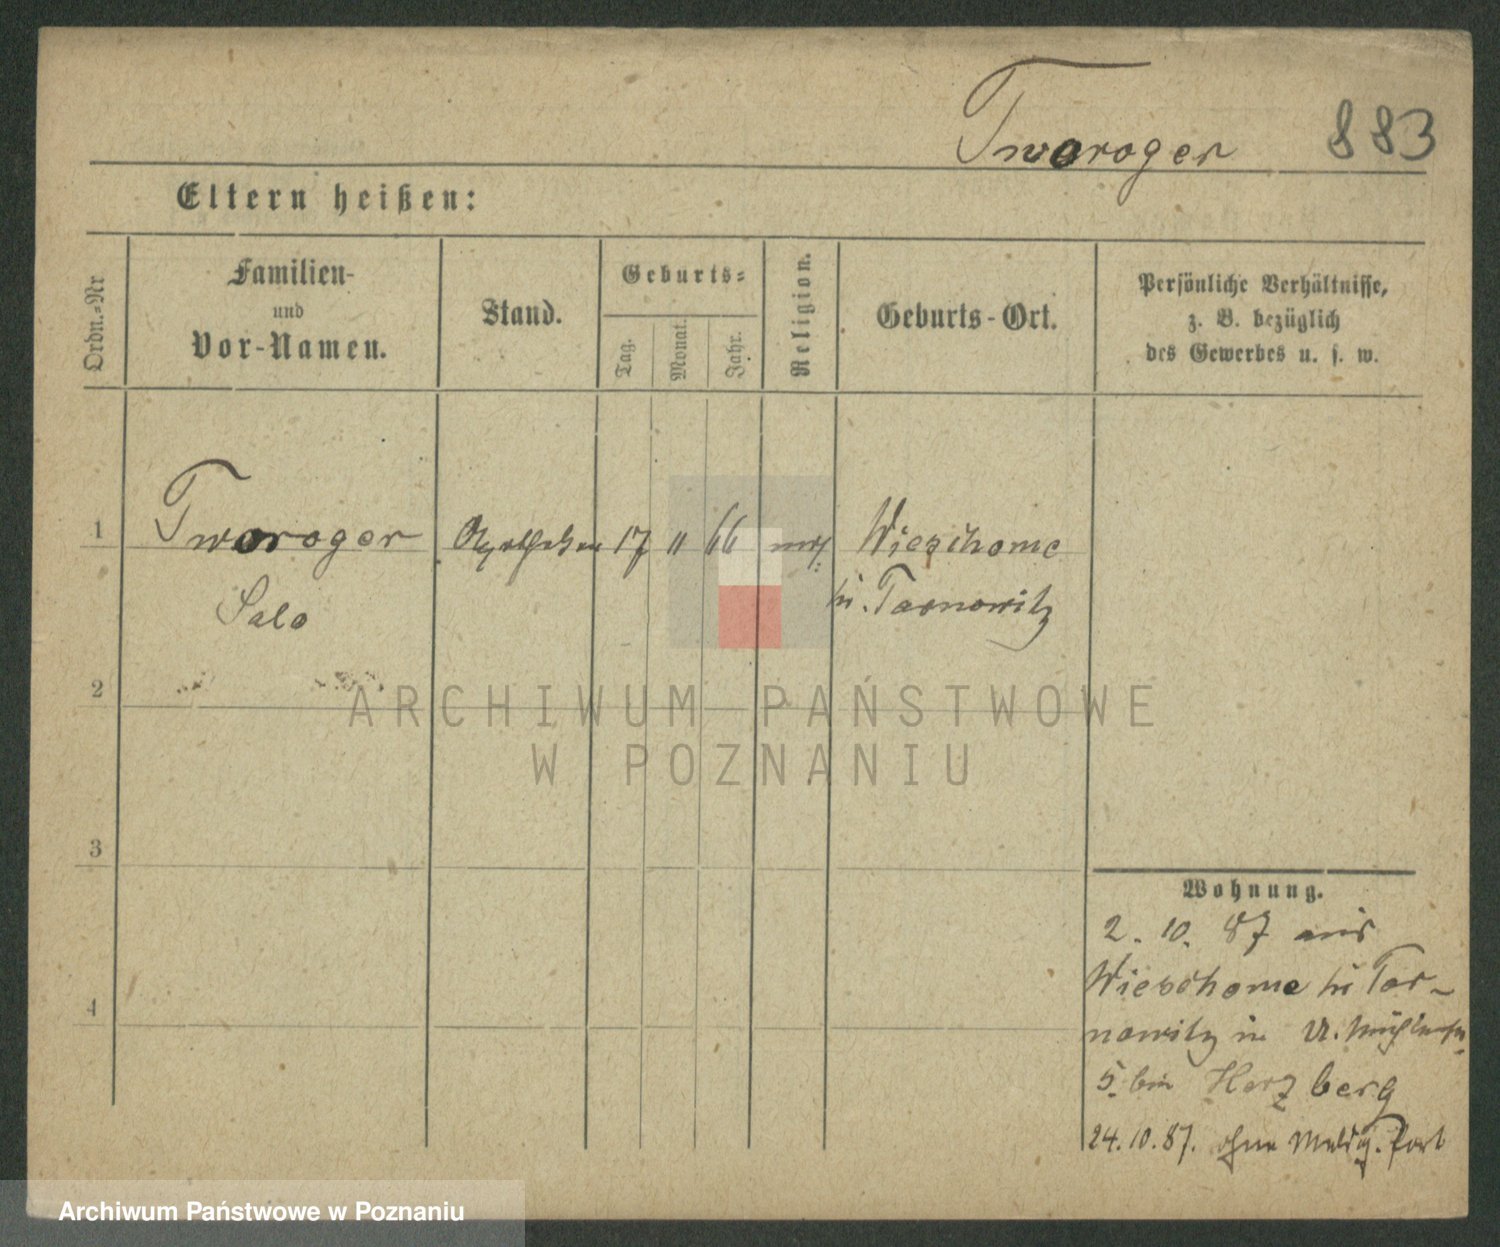 Tworoger 883
Eltern heißen:
Ordn.-Nr
Familien-
und
Vor-Namen.
Stand.
Geburts-
Tag.
Monat.
Jahr.
Religion.
Geburts-Ort.
Persönliche Verhältnisse,
z. B. bezüglich
des Gewerbes u. s. w.
1 Tworoger 17 11 66 mos. Wieschowe
Salo bei Tarnowitz
2
3
4
Wohnung.
2. 10. 87 aus
Wieschowe bei Tar-
nowitz in
5. bei Herzberg
24. 10. 87. ohne Meldg. fort
ARCHIWUM PAŃSTWOWE
W POZNANIU
Archiwum Państwowe w Poznaniu